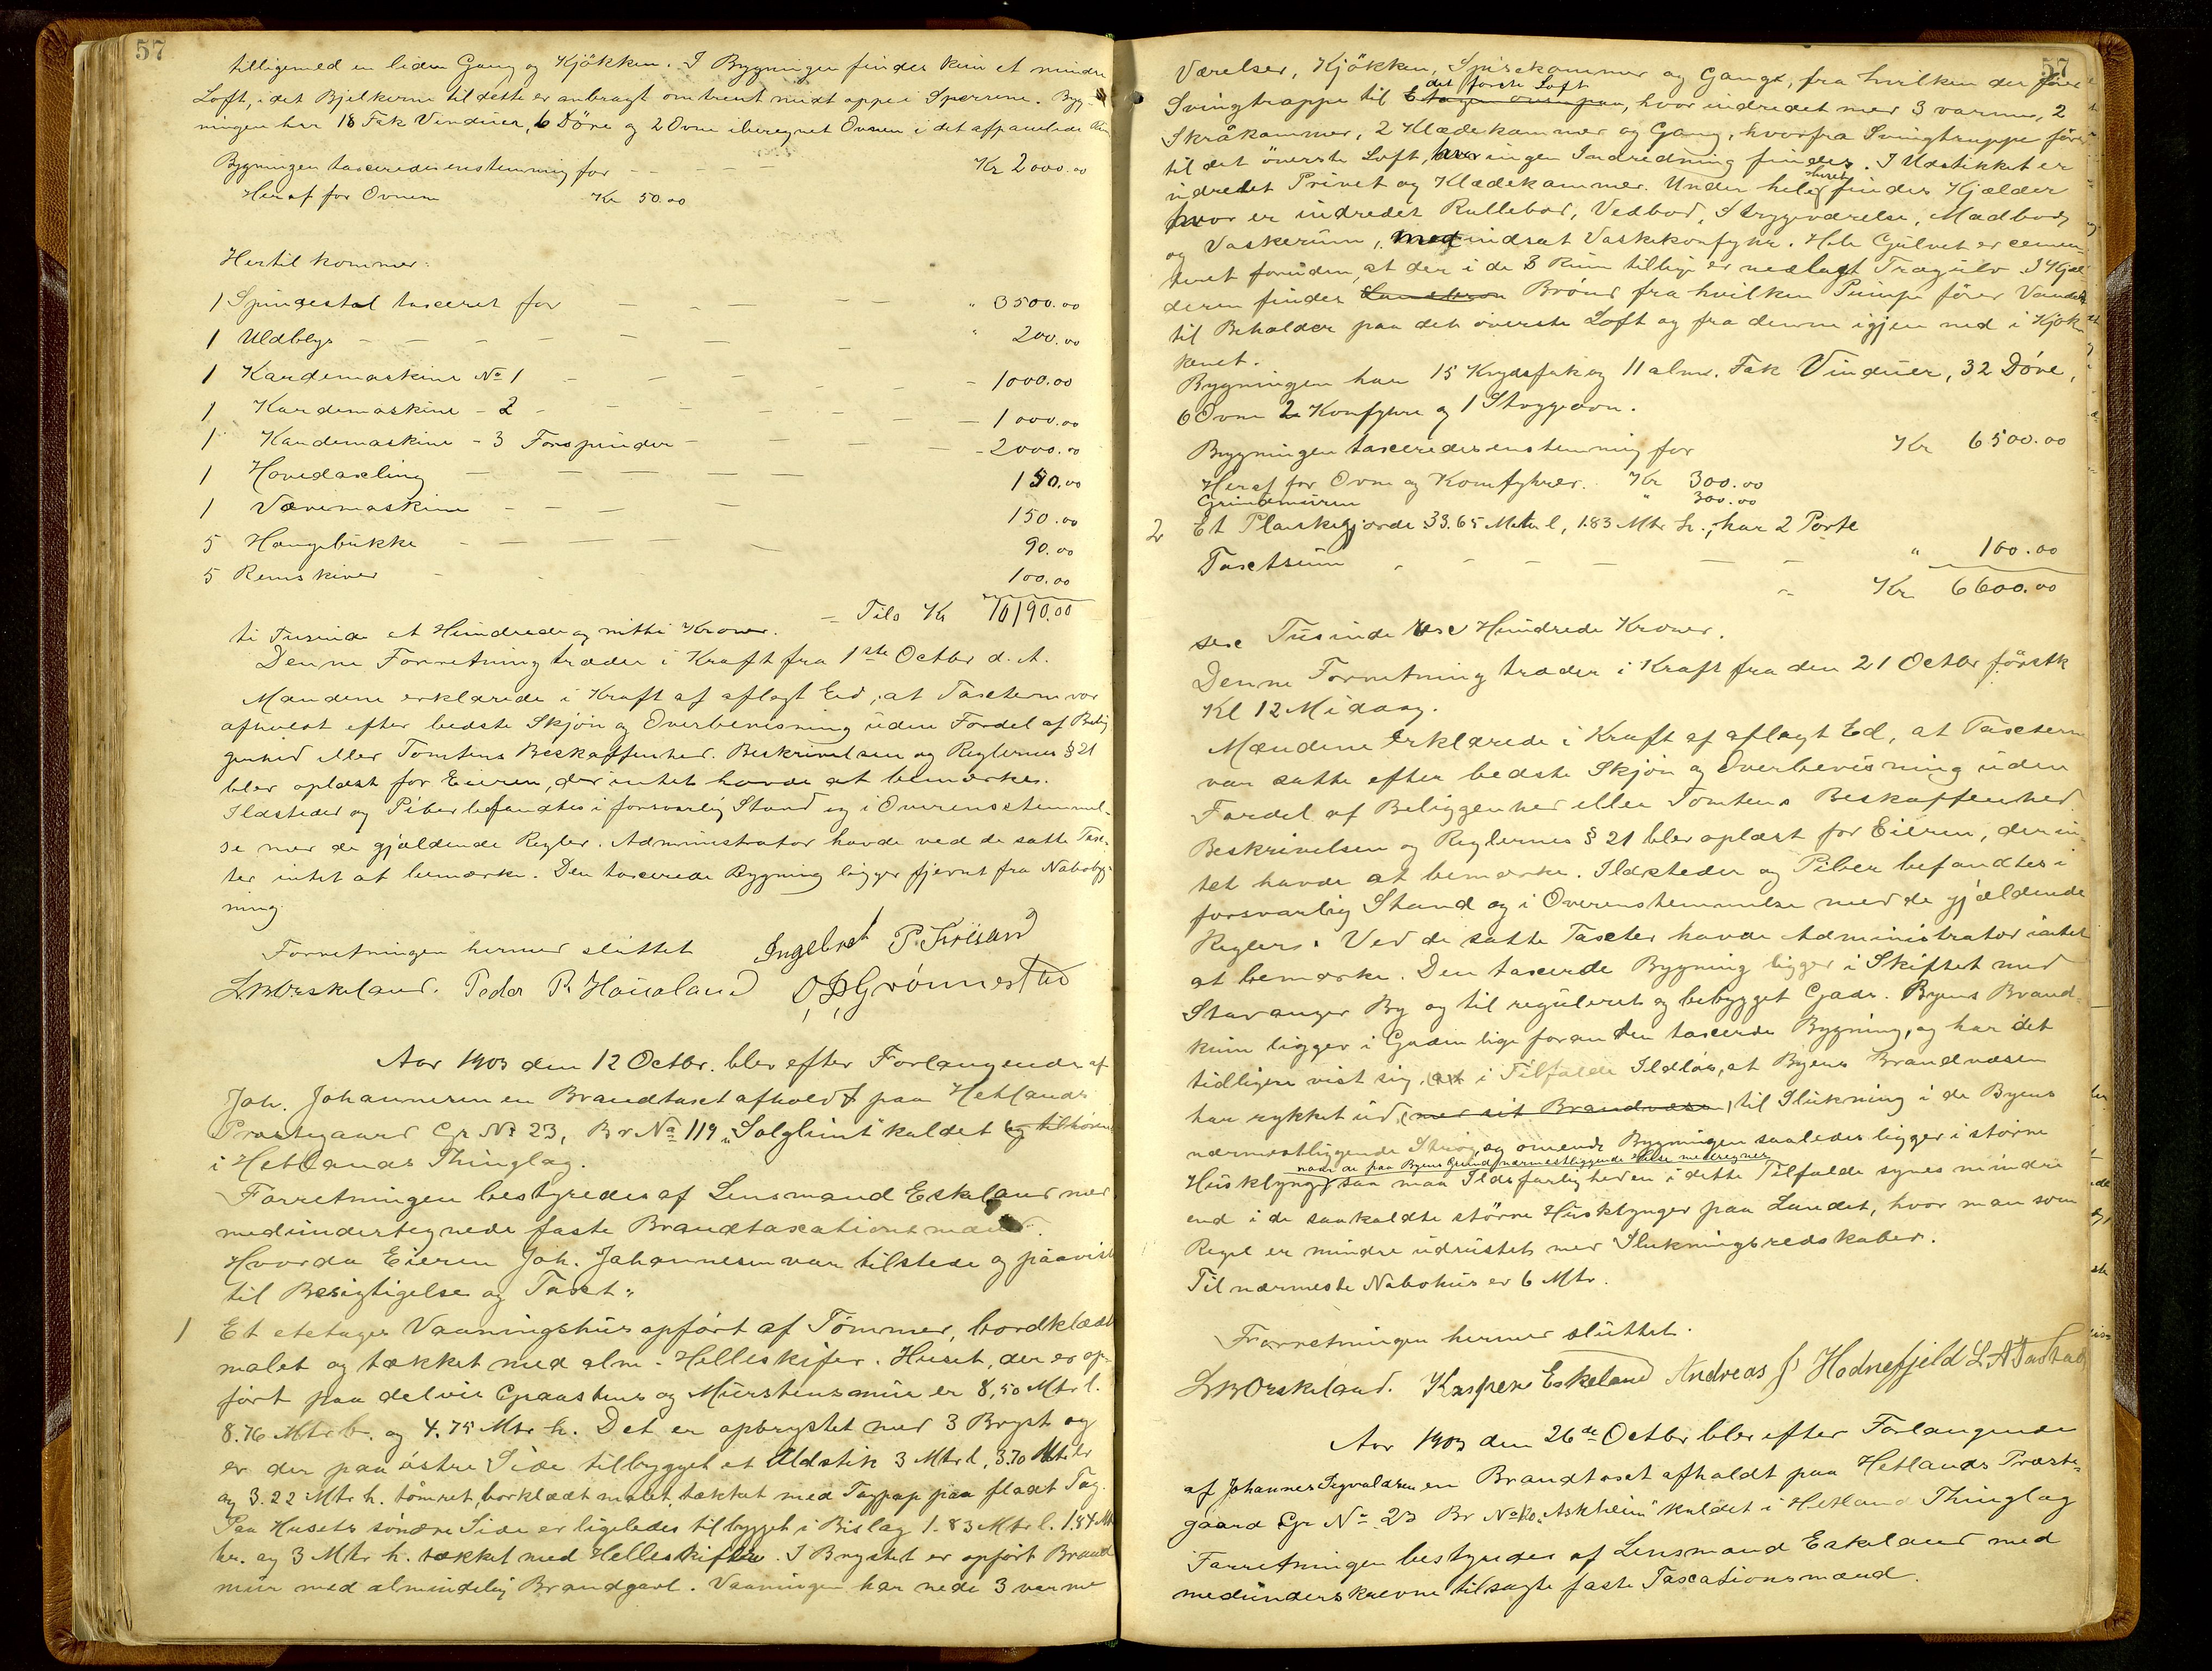 57
tilligemed en liden Gang og Kjökken. I Bygningen findes kun et mindre
Loft, idet Bjelkerne til dette er anbragt omtrent midt oppe i Sperrene. Byg-
ningen har 18 Fak Vinduer, 6 Döre og 2 Ovne iberegnet Ovnen i det afpanelede Rum
Bygningen taxeredes enstemmig for - - - - Kr 2000.00
Heraf for Ovnene Kr 50.00
Hertil kommer:
1 Spindestol taxeret for - - - - " 3500.00
1 Uldblegs - - - - - - - " 200.00
1 Kardemaskine No 1 - - - - - - 1000.00
1 Kardemaskine - 2 - - - - - - 1000.00
1 Kardemaskine - 3 Forspinder - - - - 2000.00
1 Hovedaxling - - - - - 150.00
1 Vævemaskine - - - - 150.00
5 Hængebukke - - - - - 90.00
5 Remskiver - - 100.00
= Tils Kr 10190.00
ti Tusinde et Hundrede og nitti Kroner.
Denne Forretning træder i Kraft fra 1ste Octbr d. A.
Mændene erklærede i Kraft af aflagt Ed, at Taxterne var
afholdt efter bedste Skjön og Overbevisning uden Fordel af Belig-
genhed eller Tomtens Beskaffenhed. Beskrivelsen og Reglernes § 21
blev oplæst for Eieren, der intet havde at bemærke.
Ildsteder og Piber befandtes i forsvarlig Stand og i Overensstemmel-
se med de gjældende Regler. Administrator havde ved de satte Tax-
ter intet at bemærke. Den taxerede Bygning ligger fjernt fra Nabobyg-
ning.
Forretningen hermed sluttet Ingebret P. Friisand
L M Eskeland. Peder R. Haualand O. P. Grönnestad
Aar 1903 den 12 Octbr. blev efter Forlangende af
Joh. Johannesen en Brandtaxt afholdt paa Hetlands
Præstegaard Gr No 23, Br No 119 „Solglimt" kaldet og tilhörende
i Hetlands Thinglag.
Forretningen bestyredes af Lensmand Eskeland med
medundertegnede faste Brandtaxationsmænd.
Hvorda Eieren Joh. Johannesen var tilstede og paaviste
til Besigtigelse og Taxt:
1 Et etetages Vaaningshus opfört af Tömmer, bordklædt
malet og tækket med alm. Helleskifer. Huset, der er op-
fört paa delvis Graastens og Murstensmur er 8,50 Mtr l.
8.76 Mtr b. og 4.75 Mtr h. Det er opbrystet med 3 Bryst og
er der paa östre Side tilbygget et Udstik 3 Mtr l, 3.70 Mtr br
og 3.22 Mtr h. tömret, borklædt malet, tækket med Tagpap paa fladt Tag.
Paa Husets söndre Side er ligeledes tilbygget i Bislag 1.83 Mtr l. 1.84 Mtr
br. og 3 Mtr h. tækket med Helleskifer. I Brystet er opfört Brand
mur med almindelig Brandgavl. Vaaningen har nede 3 varme
57
Værelser, Kjökken, Spisekammer og Gange, fra hvilken der förer
det förste Loft
Svingtrappe til Etagen ovenpaa, hvor indredet med 3 varme, 2
Skråkammer, 2 Klædekammer og Gang, hvorfra Svingtrappe förer
til det överste Loft, hvor ingen Indredning findes. I Udstikket er
indredet Privet og Klædekammer. Under hele Huset findes Kjælder
hvor er indredet Rullebod, Vedbod, Strygeværelse, Madbod
og Vaskerum, med indsat Vaskekomfyhr. Hele Gulvet er cemen-
teret foruden, at der i de 3 Rum tillige er nedlagt Trægulv. I Kjæl-
deren findes Brönd fra hvilken Pumpe förer Vandet
til Beholder paa det överste Loft og fra denne igjen ned i Kjök-
kenet.
Bygningen har 15 Krydsfak og 11 alm. Fak Vinduer, 32 Döre,
6 Ovne 2 Komfyhre og 1 Strygeovn.
Bygningen taxeredes enstemmig for Kr 6500.00
Heraf for Ovne og Komfyhrer. Kr 300.00
Grundmuren " 300.00
2 Et Plankegjærde 33.65 Meter l, 1.83 Mtr h., har 2 Porte
Taxtsum - - - - - - " 100.00
Kr 6600.00
sex Tusinde sex Hundrede Kroner.
Denne Forretning træder i Kraft fra den 21 Octbr förstk
Kl 12 Midag.
Mændene erklærede i Kraft af aflagt Ed, at Taxterne
var satte efter bedste Skjön og Overbevisning uden
Fordel af Beliggenhed eller Tomtens Beskaffenhed.
Beskrivelsen og Reglernes § 21 blev oplæst for Eieren, der in-
tet havde at bemærke. Ildsteder og Piber befandtes i
forsvarlig Stand og i Overenstemmelse med de gjældende
Reglers. Ved de satte Taxter havde Administrator intet
at bemærke. Den taxerede Bygning ligger i Skiftet med
Stavanger By og til reguleret og bebygget Gade. Byens Brand-
kum ligger i Gaden lige foran den taxerede Bygning, og har det
tidligere vist sig, at i Tilfælde Ildlös, at Byens Brandvæsen
har rykket ud (med sit Brandvæsen) til Slukning i de Byens
nærmestliggende Strög, og omend Bygningen saaledes ligger i större
naar de paa Byens Grund nærmestliggende Huse medregnes
Husklynge, saa maa Ildsfarligheden i dette Tilfælde synes mindre
end i de saakaldte större Husklynger paa Landet, hvor man som
Regel er mindre udrustet med Slukningsredskaber.
Til nærmeste Nabohus er 6 Mtr.
Forretningen hermed sluttet.
L M Eskeland. Kasper Eskeland Andreas J. Hodnefjeld L. A. Tastad
Aar 1903 den 26de Octbr blev efter Forlangende
af Johannes Sigvaldsen en Brandtaxt afholdt paa Hetlands Præste-
gaard Gr No 23 Br No „Askheim" kaldet i Hetland Thinglag
Forretningen bestyredes af Lensmand Eskeland med
medunderskrevne tilsagte faste Taxationsmænd.